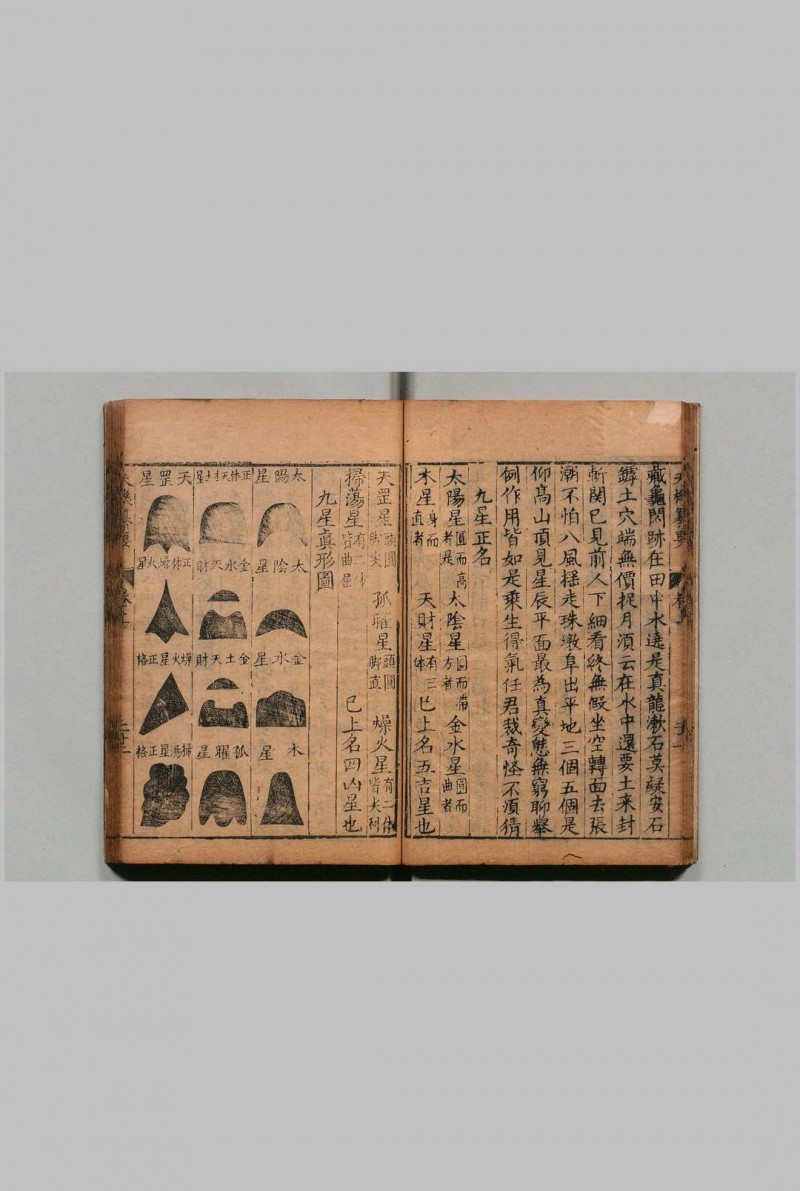 藏龜閃跡在田中水遶是真龍漱石莫疑安石
鏬土穴端無價捉月須云在水中還要土来封
斬関已見前人下細看終無假坐空轉面去張
潮不怕八風揺走珠墩阜出平地三個五個是
仰髙山頂見星辰平面最為真變態無窮聊舉
例作用皆如是乘生得氣任君裁奇怪不須猜
九星正名
太陽星圓而高者是 太陰星圓而帶方者 金水星圓而曲者
木星身而直者 天財星有三体 已上名五吉星也
天罡星頭圓脚尖 孤曜星頭圓脚直 燥火星有二体皆尖
掃蕩星有二体皆曲 已上名四凶星也
九星真形圖
太陽星
太陰星
金水星
木星
正体天土星
金水天財
金土天財
孤曜星
天罡星
正体燥火星
燥火星正格
掃蕩星正格